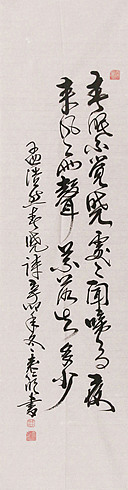 春眠不觉晓处处闻啼鸟夜
来风雨声花落知多少
孟浩然春晓诗辛卯年冬